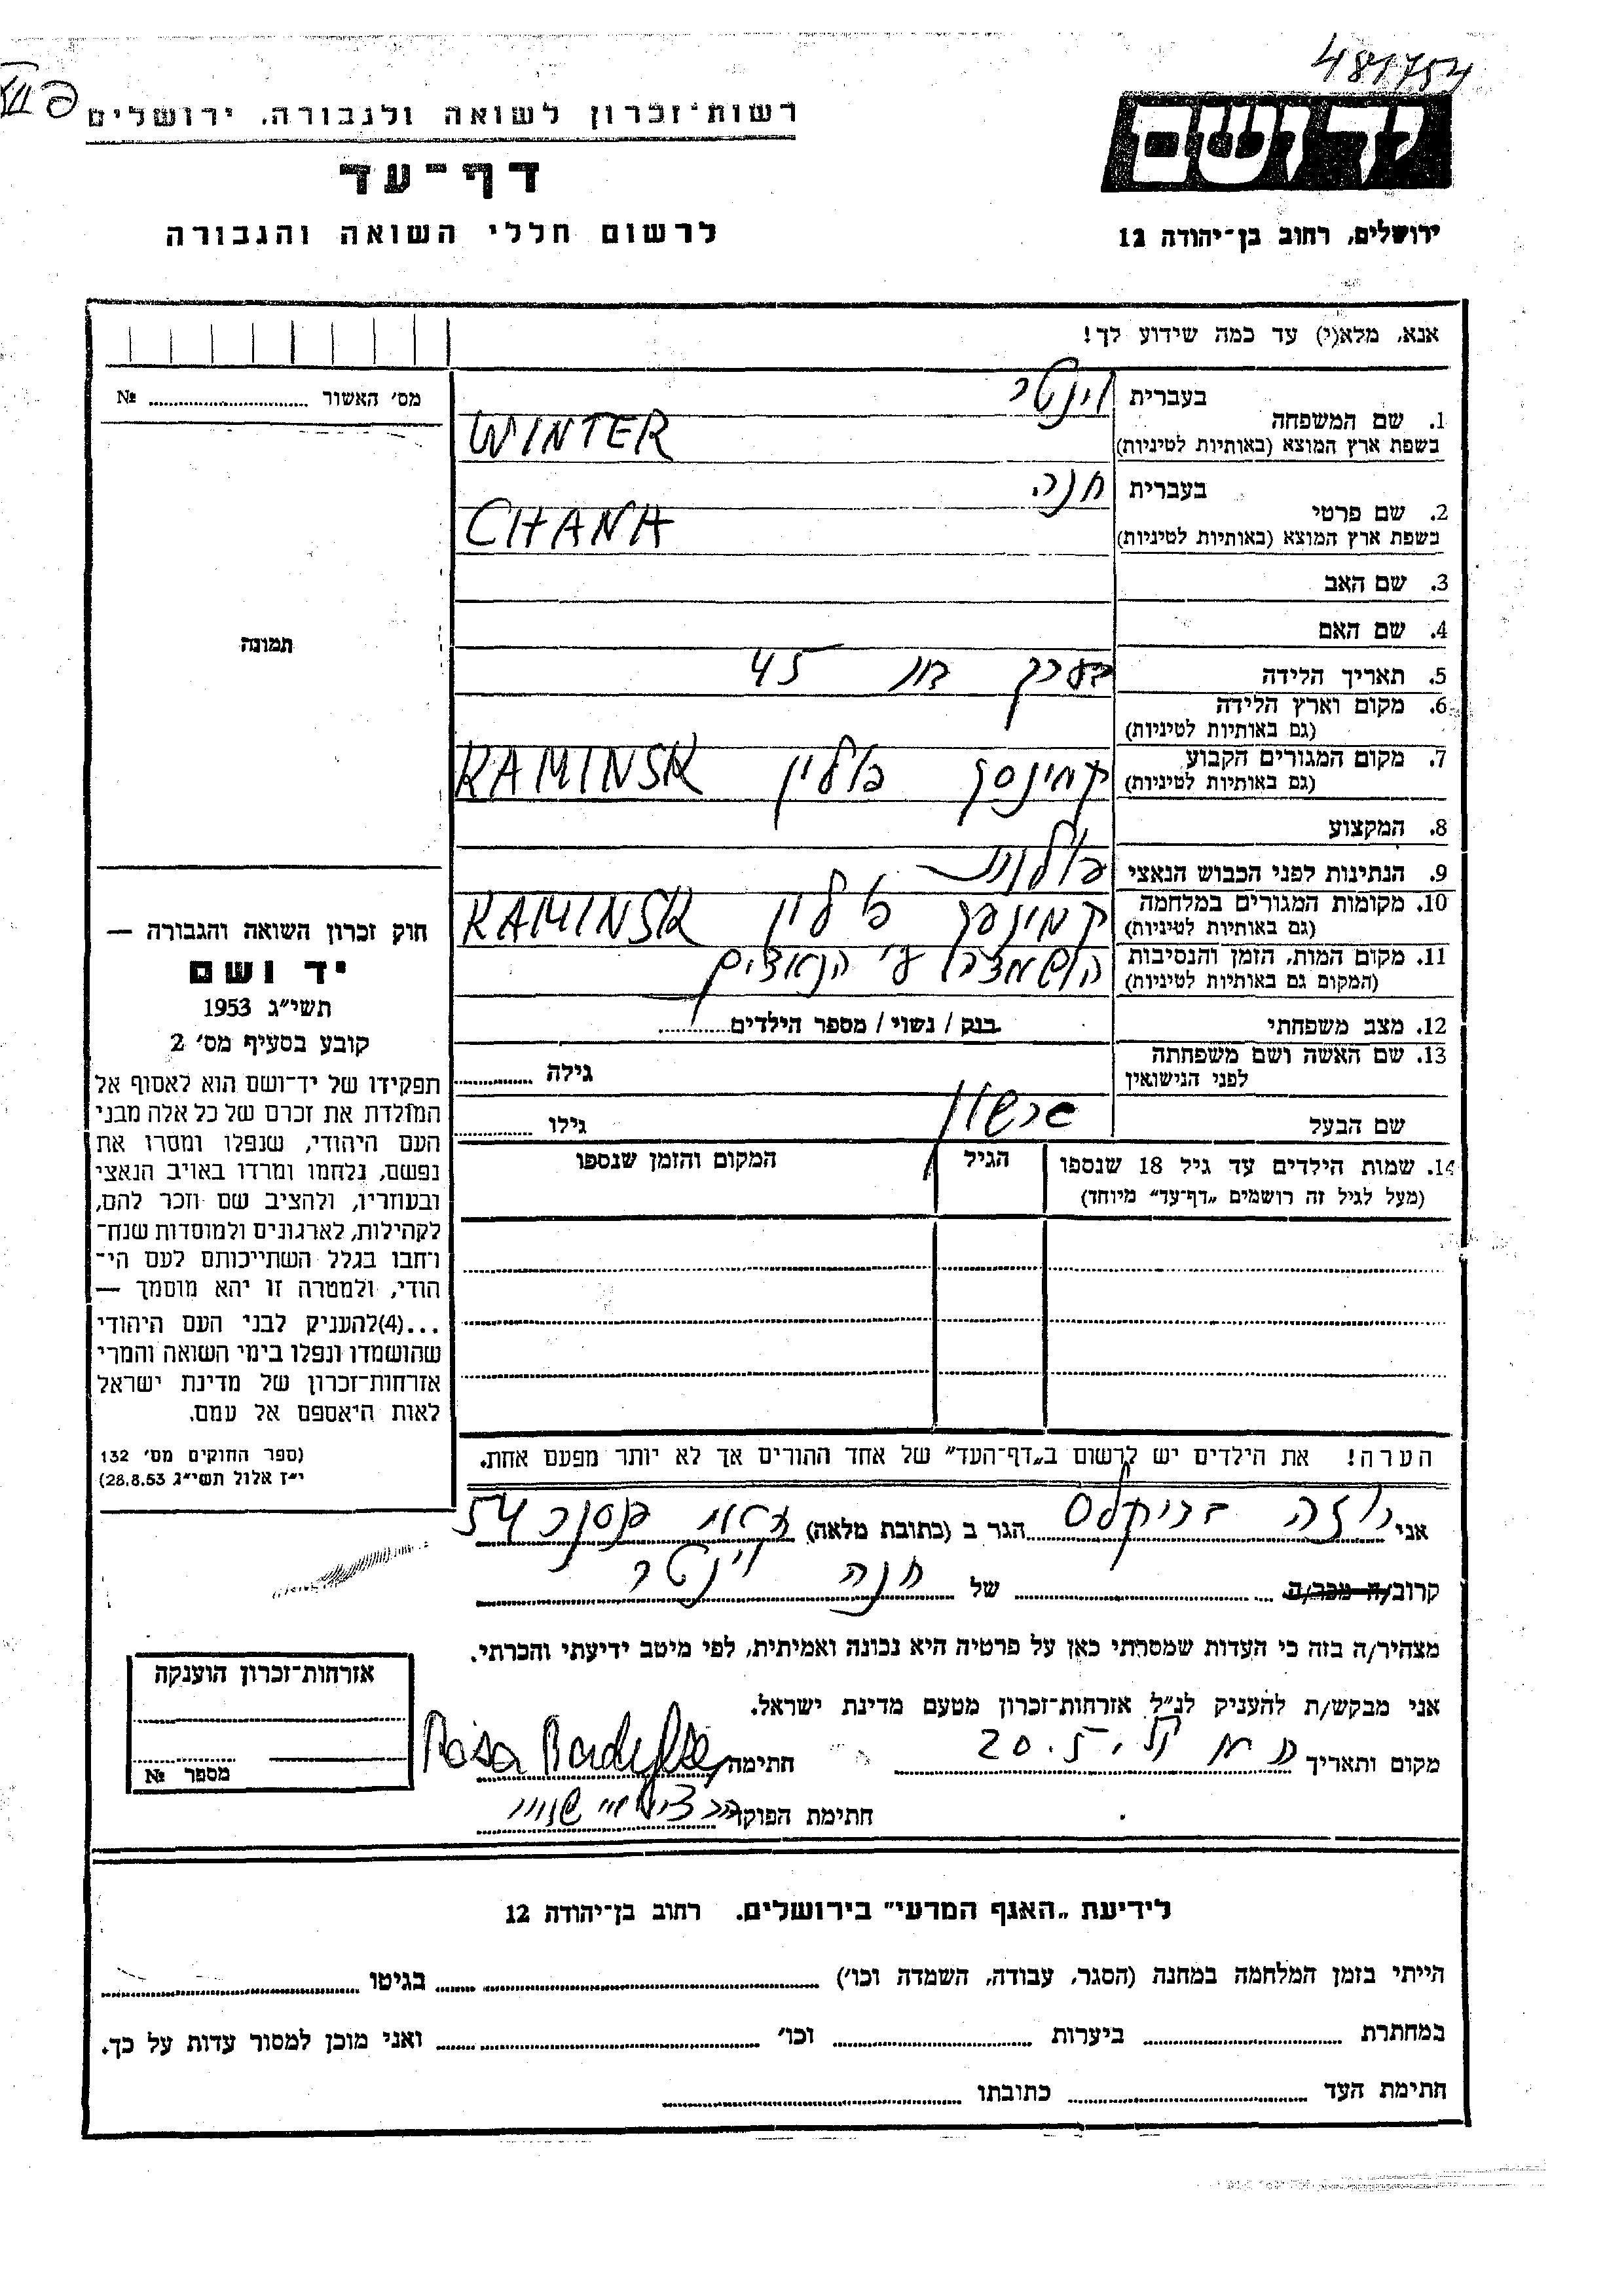 481754
רשות־זכרון לשואה ולגבורה. ירושלים
דף־עד
לרשום חללי השואה והגבורה
ירושלים, רחוב בן־יהודה 12
אנא, מלא(י) עד כמה שידוע לך!
בעברית וינטר
1. שם המשפחה
בשפת ארץ המוצא (באותיות לטיניות) WINTER
בעברית חנה
2. שם פרטי
בשפת ארץ המוצא (באותיות לטיניות) CHANA
3. שם האב
4. שם האם
5. תאריך הלידה בערך בת 45
6. מקום וארץ הלידה
(גם באותיות לטיניות)
7. מקום המגורים הקבוע
(גם באותיות לטיניות) קמינסק פולין KAMINSK
8. המקצוע
9. הנתינות לפני הכבוש הנאצי פולנית
10. מקומות המגורים במלחמה
(גם באותיות לטיניות) קמינסק פולין KAMINSK
11. מקום המות, הזמן והנסיבות
(המקום גם באותיות לטיניות) הושמדה ע״י הנאצים
12. מצב משפחתי רווק / נשוי / מספר הילדים
13. שם האשה ושם משפחתה
לפני הנישואין גילה
שם הבעל גרשון גילו
14. שמות הילדים עד גיל 18 שנספו
(מעל לגיל זה רושמים „דף־עד״ מיוחד)
הגיל
המקום והזמן שנספו
הערה! את הילדים יש לרשום ב„דף־העד״ של אחד ההורים אך לא יותר מפעם אחת.
מס׳ האשור №
תמונה
חוק זכרון השואה והגבורה —
יד ושם
תשי״ג 1953
קובע בסעיף מס׳ 2
תפקידו של יד־ושם הוא לאסוף אל
המולדת את זכרם של כל אלה מבני
העם היהודי, שנפלו ומסרו את
נפשם, נלחמו ומרדו באויב הנאצי
ובעוזריו, ולהציב שם וזכר להם,
לקהילות, לארגונים ולמוסדות שנח־
רחבו בגלל השתייכותם לעם הי־
הודי, ולמטרה זו יהא מוסמך —
...(4)להעניק לבני העם היהודי
שהושמדו ונפלו בימי השואה והמרי
אזרחות־זכרון של מדינת ישראל
לאות היאספם אל עמם.
(ספר החוקים מס׳ 132
י״ז אלול תשי״ג 28.8.53)
אני רוזה הגר ב (כתובת מלאה) 54
קרוב/ה מכר/ה של חנה וינטר
מצהיר/ה בזה כי העדות שמסרתי כאן על פרטיה היא נכונה ואמיתית, לפי מיטב ידיעתי והכרתי.
אני מבקש/ת להעניק לנ״ל אזרחות־זכרון מטעם מדינת ישראל.
מקום ותאריך 20.5 חתימה Rosa
חתימת הפוקד
אזרחות־זכרון הוענקה
מספר №
לידיעת „האגף המדעי״ בירושלים. רחוב בן־יהודה 12
הייתי בזמן המלחמה במחנה (הסגר, עבודה, השמדה וכו׳) בגיטו
במחתרת ביערות וכו׳ ואני מוכן למסור עדות על כך.
חתימת העד כתובתו